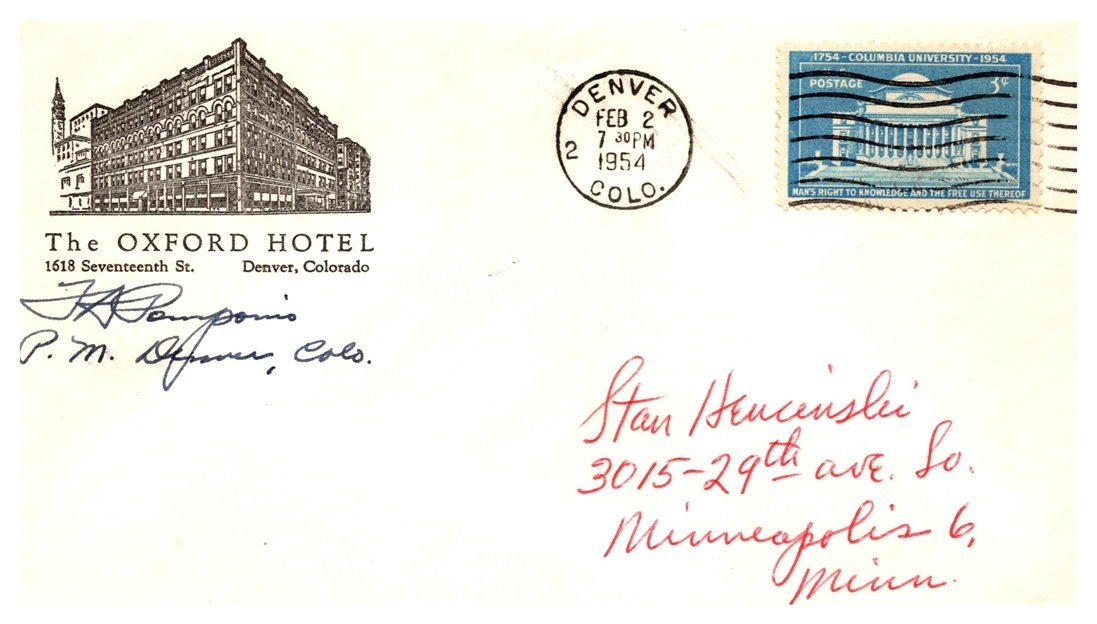 The OXFORD HOTEL
1618 Seventeenth St. Denver, Colorado
P. M. Denver, Colo.
DENVER
FEB 2
7 30 PM
1954
2
COLO.
1754-COLUMBIA UNIVERSITY-1954
U.S. POSTAGE
3¢
MAN'S RIGHT TO KNOWLEDGE AND THE FREE USE THEREOF
Stan
3015-29th ave. So.
Minneapolis 6,
Minn.